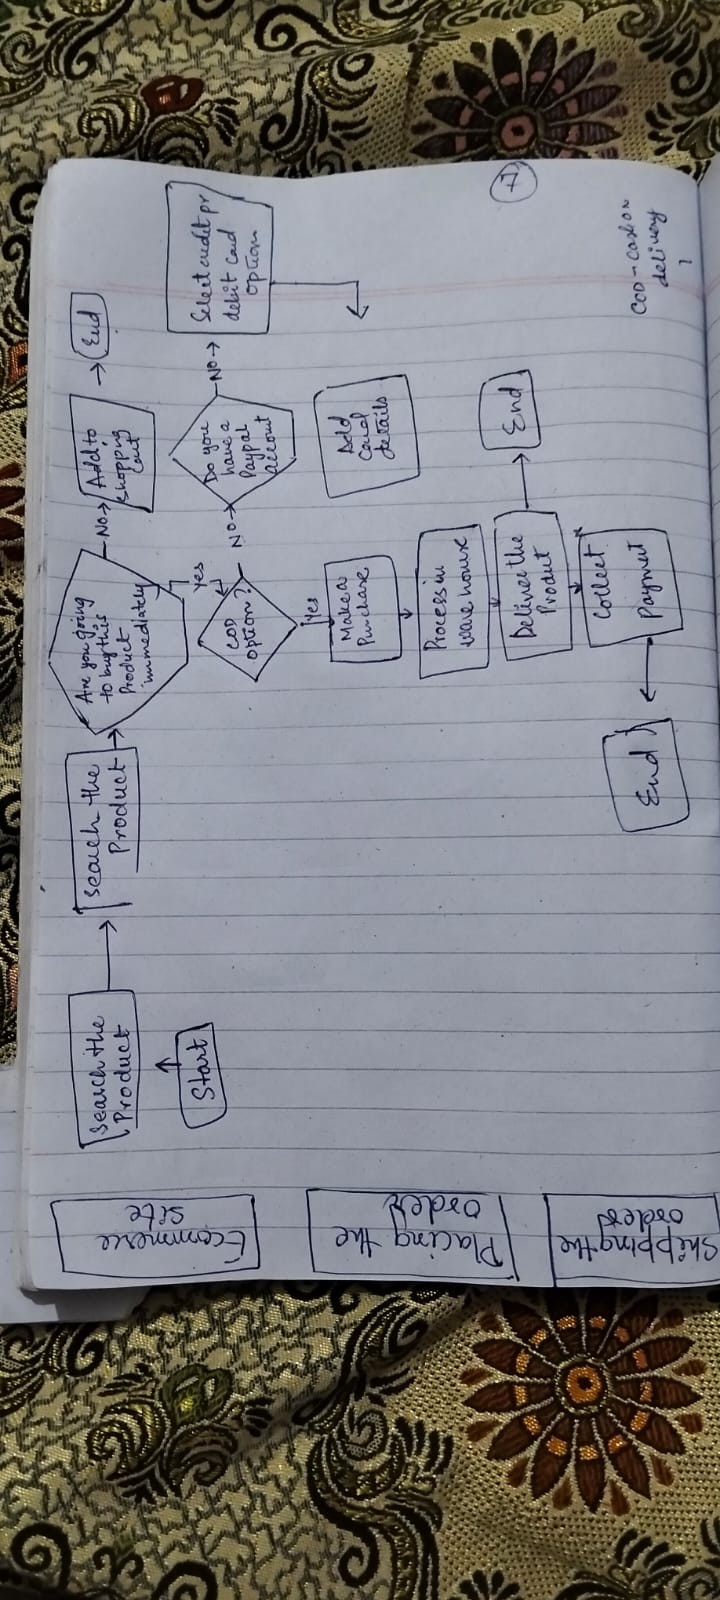 Ecommerce
site
Placing the
order
Shipping the
orders
Start
Search the
Product
Search the
Product
Are you going
to buy this
Product
immediately
NO
Add to
shopping
cart
End
Yes
COD
option?
NO
Do you
have a
Paypal
account
NO
Select credit or
debit card
option
Add
Card
details
Yes
Make a
Purchase
Process in
ware house
Deliver the
Product
End
Collect
Payment
End
7
COD - cash on
delivery